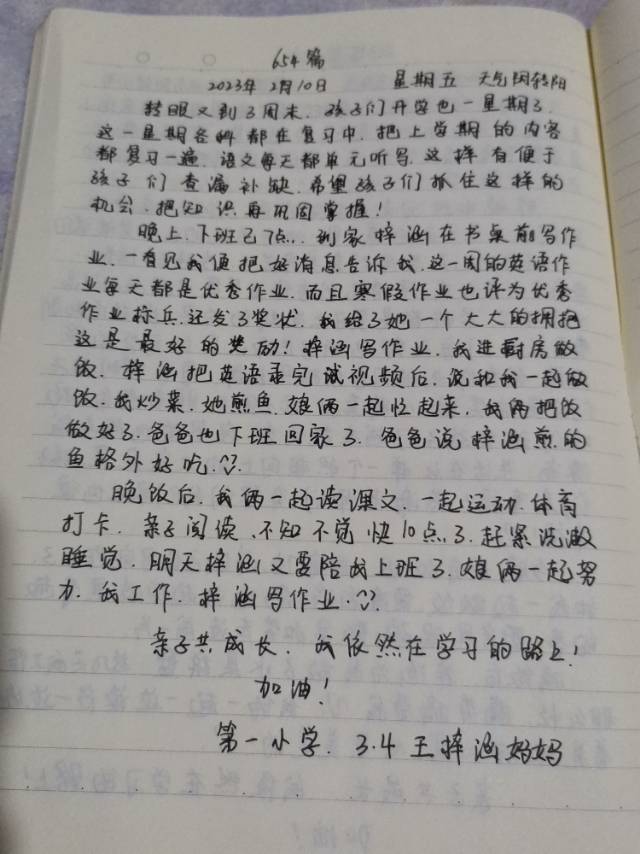 654篇
2023年2月10日 星期五 天气阴转阳
转眼又到了周末，孩子们开学也一星期了.
这一星期各科都在复习中，把上学期的内容
都复习一遍，语文每天都单元听写，这样有便于
孩子们查漏补缺，希望孩子们抓住这样的
机会，把知识再巩固掌握！
晚上，下班已7点，到家梓涵在书桌前写作
业，一看见我便把好消息告诉我，这一周的英语作
业每天都是优秀作业，而且寒假作业也评为优秀
作业标兵，还发了奖状，我给了她一个大大的拥抱
这是最好的奖励！梓涵写作业，我进厨房做
饭，梓涵把英语录完试视频后，说和我一起做
饭，我炒菜，她煎鱼，娘俩一起忙起来，我俩把饭
做好了，爸爸也下班回家了，爸爸说梓涵煎的
鱼格外好吃.
晚饭后，我俩一起读课文，一起运动，体育
打卡，亲子阅读，不知不觉快10点了，赶紧洗漱
睡觉，明天梓涵又要陪我上班了，娘俩一起努
力，我工作，梓涵写作业.
亲子共成长，我依然在学习的路上！
加油！
第一小学，3.4王梓涵妈妈